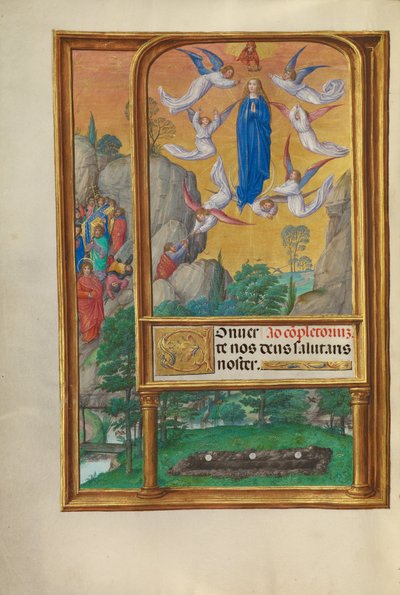 Onuer Ad cōpletoriuȝ.
te nos deus salutaris
noster.